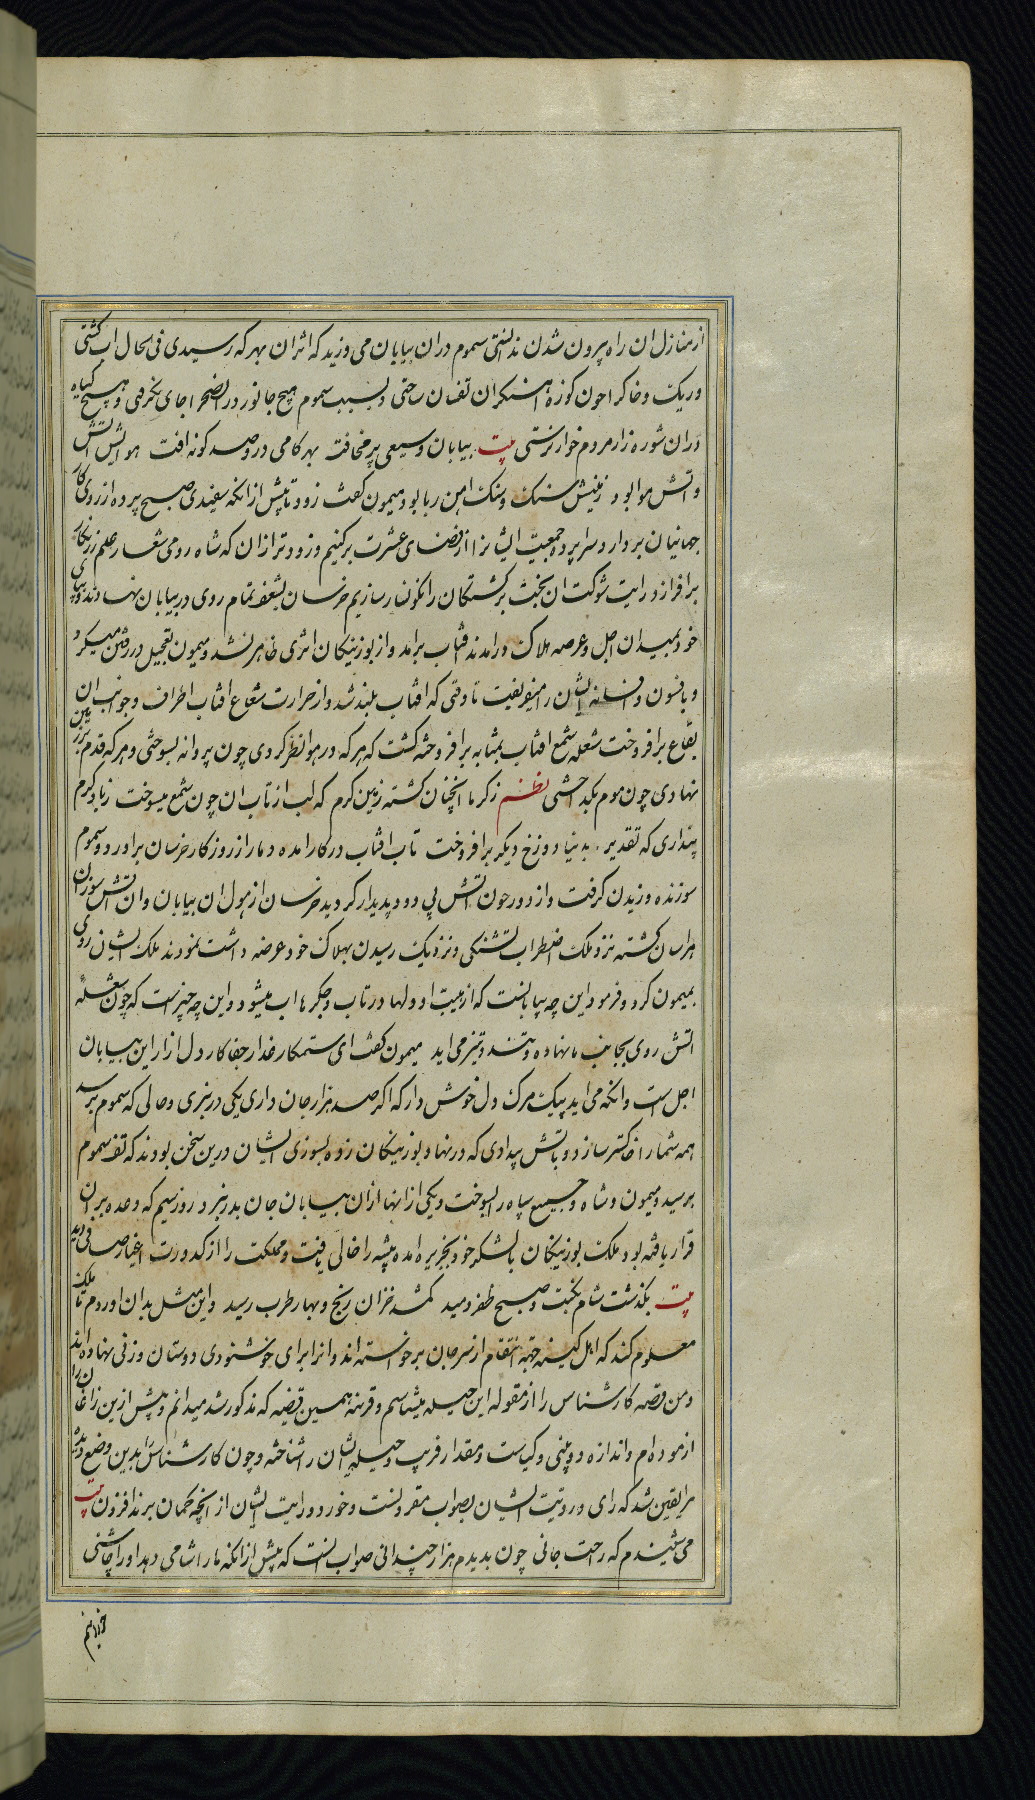 از منازل ان راه بیرون شدن ندانستی سموم دران بیابان می وزید که اثر ان بهر که رسیدی فی الحال اب کشتی
وریک و خاک را چون کوزه اهنکران تفسان ساختی و بسبب سموم هیچ جانور در انصحرا جای نکرفتی و هیچ کیاه
دران شوره زار مردم خوار نرستی بیت بیابان وسیعی پر مخافت بهر کامی درو صد کونه افت هوایش اتش
و اتش هوا بود زمینش سنک و سنک اهن ربا بود میمون کفت زود تا پیش ازانکه سفیدی صبح پرده از روی کار
جهانیان بردارد سراپرده جمعیت ایشانرا از فضای عشرت برکنیم و زودتر ازان که شاه رومی شعار علم زرنکار
برافرازد رایت شوکت ان بخت برکشتکان را نکونسار سازیم خرسان بشعف تمام روی در بیابان نهادند و بپای
خود بمیدان اجل و عرصه هلاک درامدند افتاب برامد و از بوزنیکان اثری ظاهر نشد و میمون تعجیل در رفتن میکرد
و بافسون و افسانه ایشان را میفریفت تا وقتی که افتاب بلند شد و از حرارت شعاع افتاب اطراف و جوانب ان
بقاع برافروخت شعله شمع افتاب بمثابه برافروخته کشت که هر که در هوا نظر کردی چون پروانه بسوختی و هر که قدم بر زمین
نهادی چون موم بکداختی نظم ز کرما انچنان کشته زمین کرم که لب از تاب ان چون شمع میسوخت ز باد کرم
پنداری که تقدیر بدنیا دوزخ دیکر برافروخت تاب افتاب در کار امده دمار از روزکار خرسان براورد و سموم
سوزنده وزیدن کرفت و از دور چون اتش پی دود پدیدار کردید خرسان از هول ان بیابان و ان اتش سوزان
هراسان کشته نزد ملک اضطراب تشنکی و نزدیک رسیدن بهلاک خود عرضه داشت نمودند ملک ایشان روی
بمیمون کرد و فرمود این چه بیابانست که از هیبت او دلها در تاب و جکرها اب میشود و این چه چیزست که چون شعله
اتش روی بجانب ما نهاده و تند و تیز می اید میمون کفت ای ستمکار غدار جفاکار دل ازار این بیابان
اجل است و انکه می اید پیک مرک دل خوش دار که اکر صد هزار جان داری یکی در نبری و حالی که سموم برسد
همه شما را خاکستر سازد و باتش بیدادی که در نهاد بوزنیکان زده بسوزی ایشان درین سخن بودند که تف سموم
برسید و میمون و شاه و جمیع سپاه را بسوخت و یکی از انها ازان بیابان جان بدر نبرد روز سیم که وعده بران
قرار یافته بود ملک بوزنیکان با لشکر خود بجزیره امده بیشه را خالی یافت و مملکت را از کدورت اغیار صافی دید
بیت بکذشت شام نکبت و صبح ظفر دمید کم شد خزان رنج و بهار طرب رسید و این مثل بدان اوردم تا ملک
معلوم کند که اهل کینه جهت انتقام از سر جان برخواسته اند و انرا برای خوشنودی دوستان وزنی نهاده اند
و من قصه کارشناس را از مقوله این حیله میشناسم و قرینه همین قضیه که مذکور شد میدانم و پیش ازین زاغان را
ازموده ام و اندازه دوبینی و کیاست و مقدار فریب و حیله ایشان را شناخته و چون کارشناس را بدین وضع دیدم
مرا یقین شد که رای و رویت ایشان بصواب مقرونست و خرد و درایت ایشان از انچه کمان برند افزون بیت
می شنیدم که راحت جانی چون بدیدم هزار چندانی صواب انست که پیش ازانکه ما را شامی دهد او را چاشنی
خورانیم